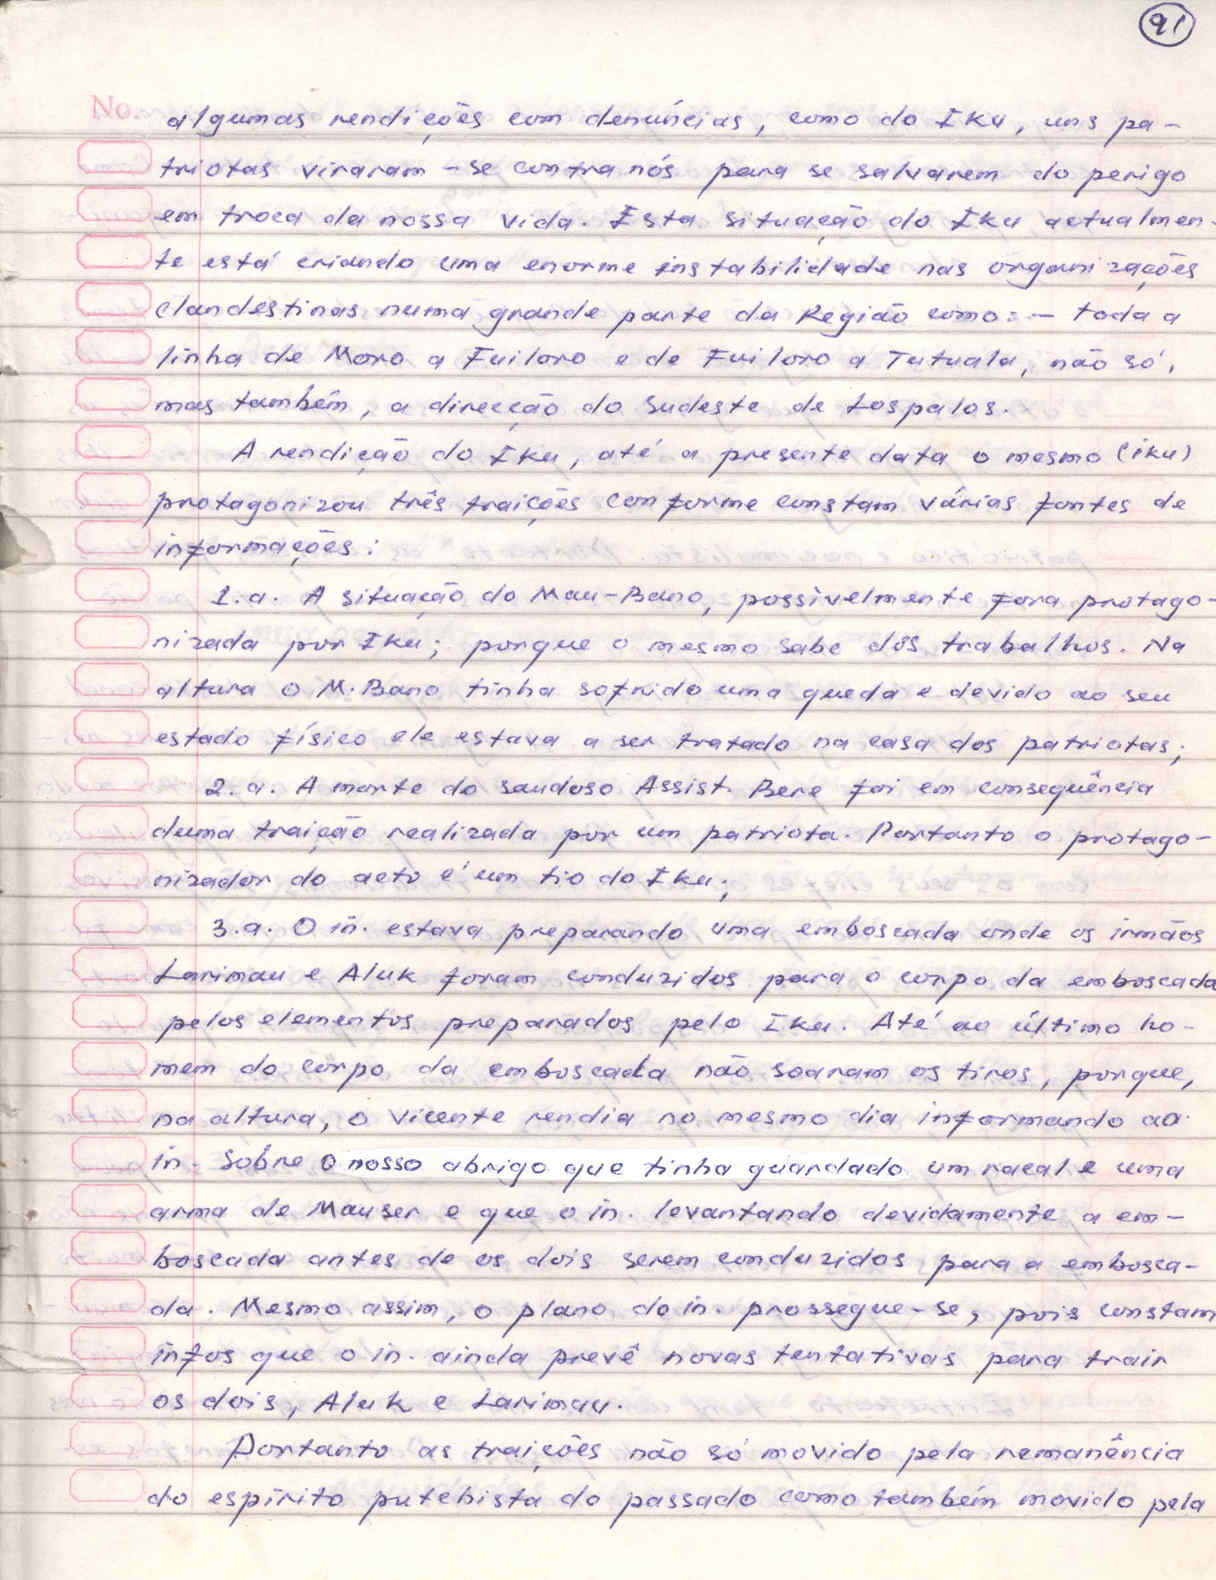 91
No.
algumas rendições com denúncias, como do Iku, uns pa-
triotas viraram-se contra nós para se salvarem do perigo
em troca da nossa vida. Esta situação do Iku actualmen-
te está criando uma enorme instabilidade nas organizações
clandestinas numa grande parte da Região como: - toda a
linha de Moro a Fuiloro e de Fuiloro a Tutuala, não só,
mas também, a direcção do sudeste de Lospalos.
A rendição do Iku, até a presente data o mesmo (iku)
protagonizou três traições conforme constam várias fontes de
informações:
1.a. A situação do Mau-Bano, possivelmente fora protago-
nizada por Iku; porque o mesmo sabe dos trabalhos. Na
altura o M. Bano tinha sofrido uma queda e devido ao seu
estado físico ele estava a ser tratado na casa dos patriotas;
2.a. A morte do saudoso Assist. Bere foi em consequência
duma traição realizada por um patriota. Portanto o protago-
nizador do acto é um tio do Iku;
3.a. O in. estava preparando uma emboscada onde os irmãos
Larimau e Aluk foram conduzidos para o corpo da emboscada
pelos elementos preparados pelo Iku. Até ao último ho-
mem do corpo da emboscada não soaram os tiros, porque,
na altura, o Vicente rendia no mesmo dia informando ao
in. sobre o nosso abrigo que tinha guardado um racal e uma
arma de Mauser e que o in. levantando devidamente a em-
boscada antes de os dois serem conduzidos para a embosca-
da. Mesmo assim, o plano do in. prossegue-se, pois constam
infos que o in. ainda prevê novas tentativas para trair
os dois, Aluk e Larimau.
Portanto as traições não só movido pela remanência
do espírito putchista do passado como também movido pela